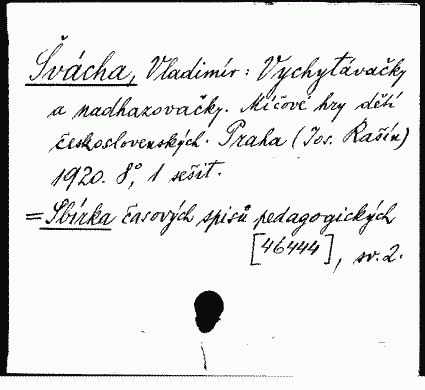 Švácha, Vladimír: Vychytávačky
a nadhazovačky. Míčové hry dětí
československých. Praha (Jos. Rašín)
1920. 8°, 1 sešit.
= Sbírka časových spisů pedagogických
[46444], sv. 2.